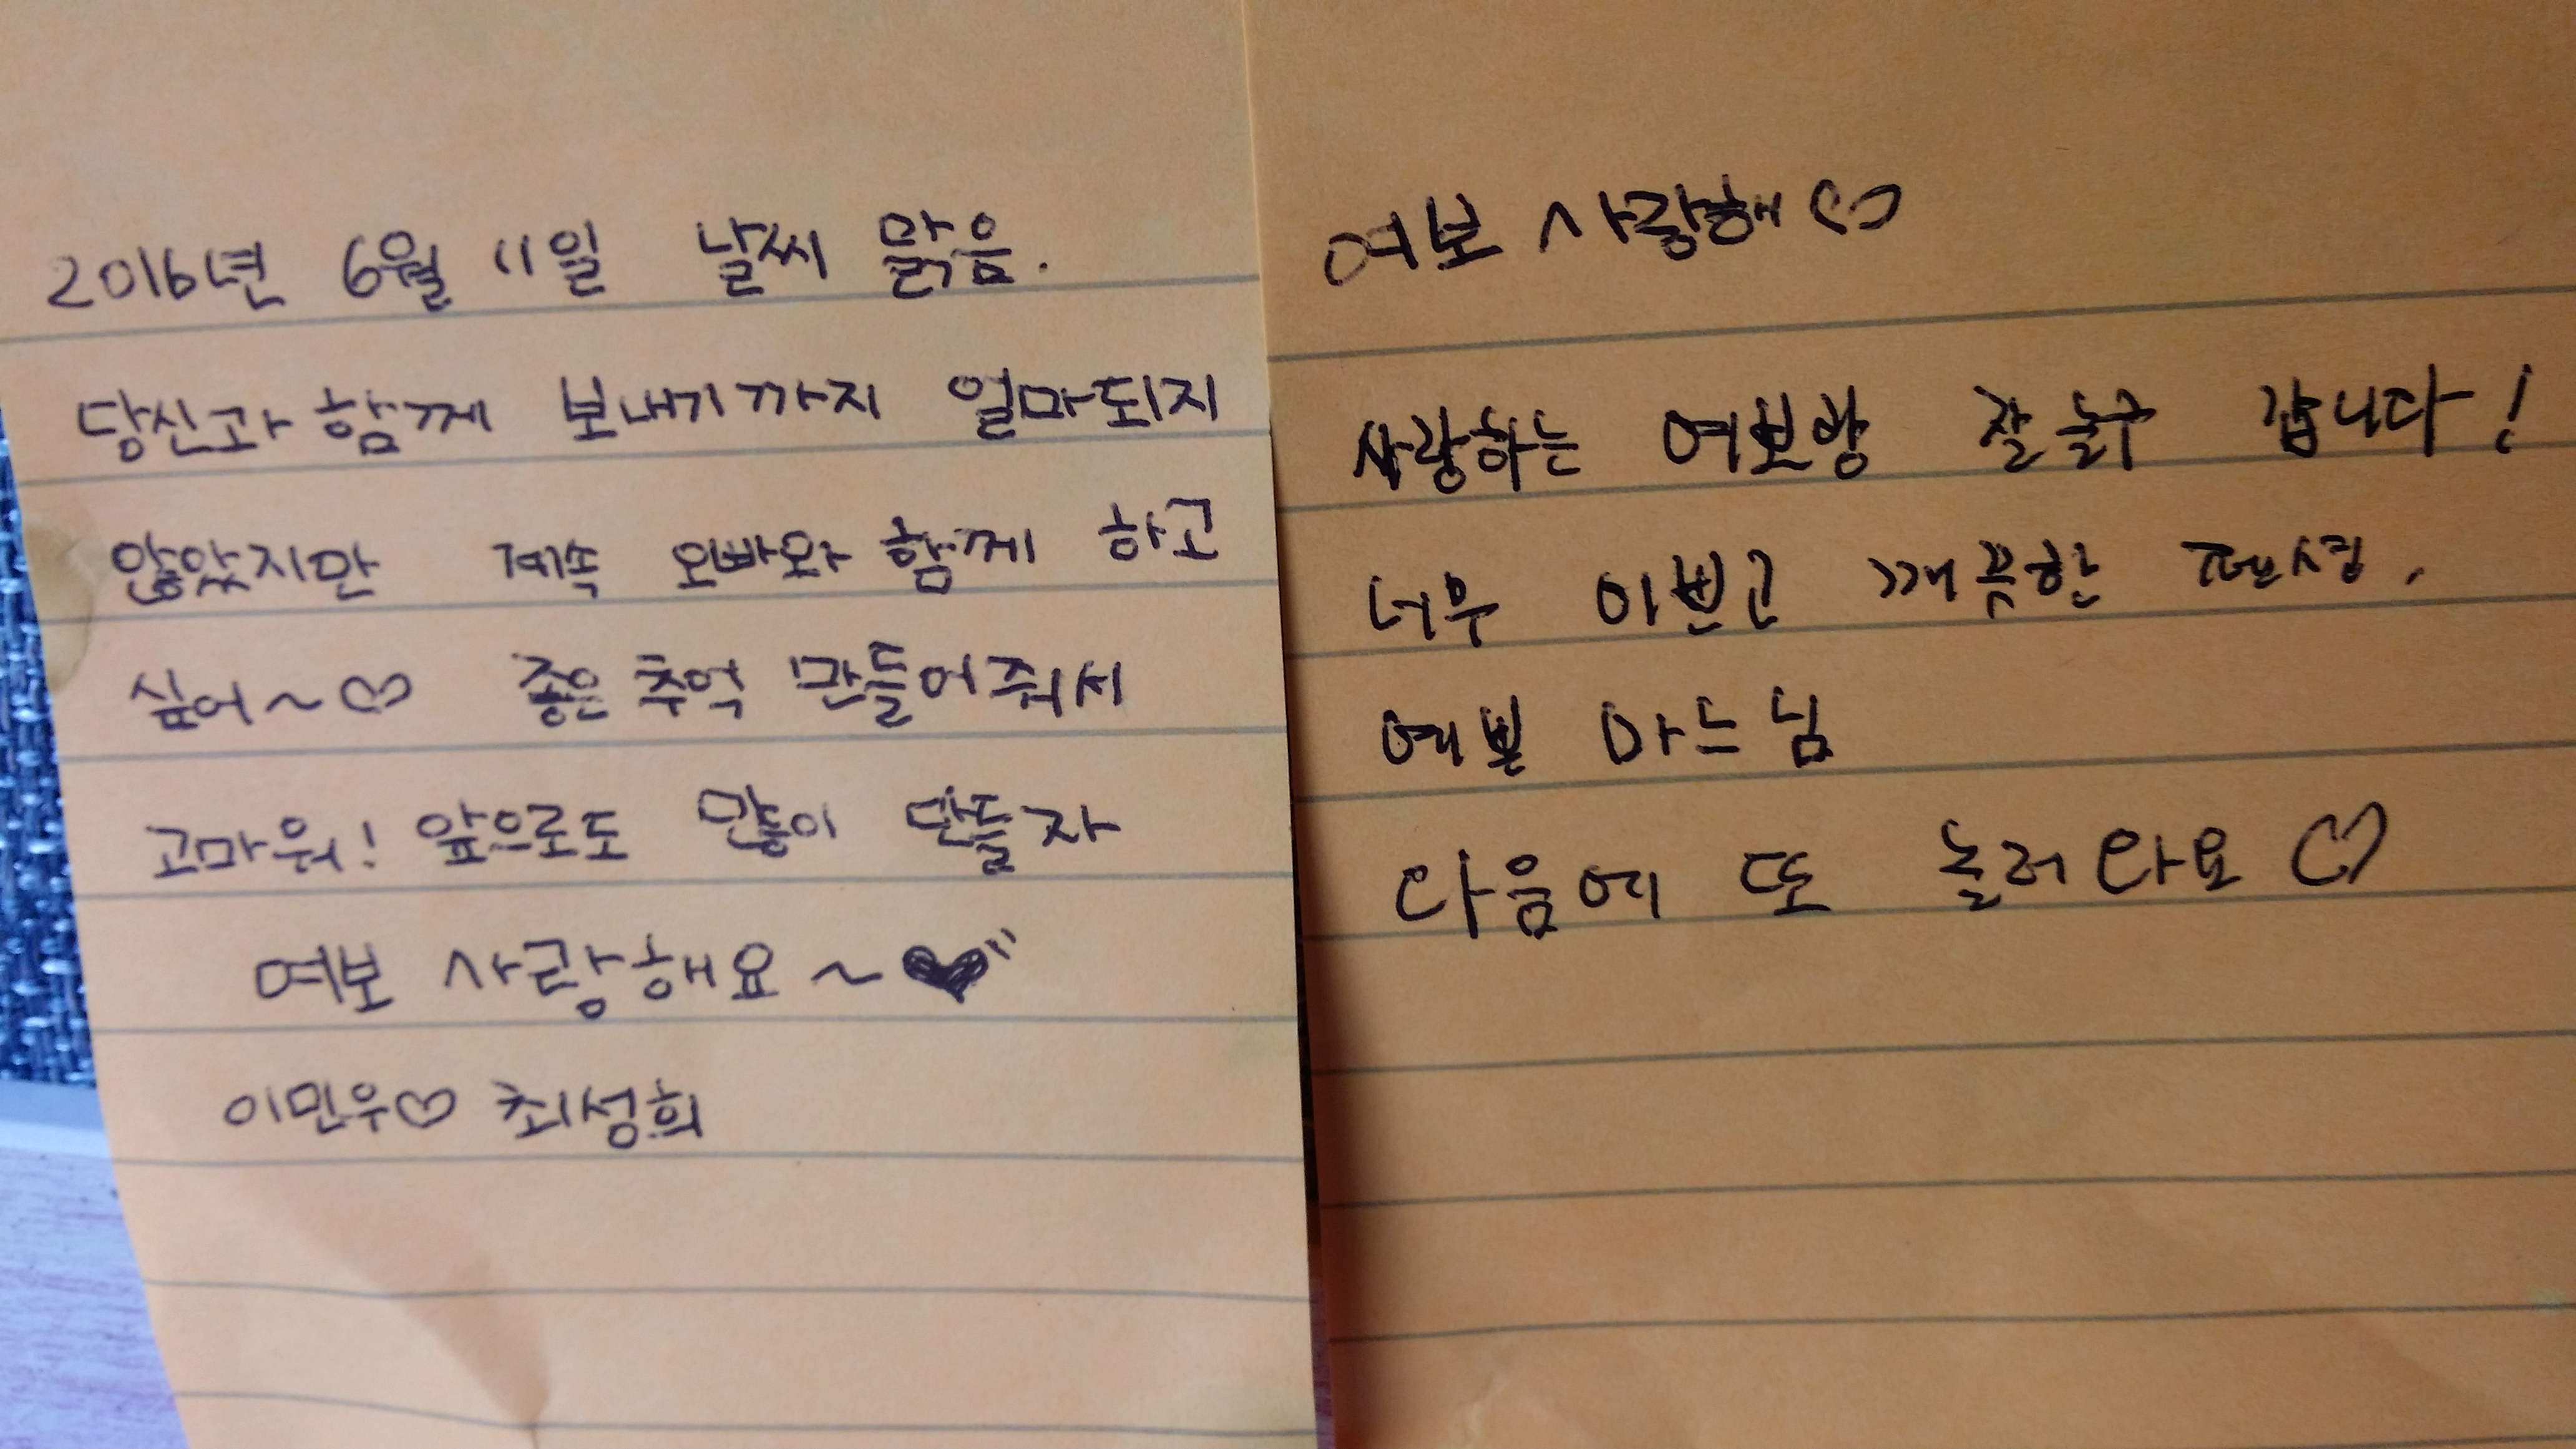 2016년 6월 11일 날씨 맑음.
당신과 함께 보내기까지 얼마되지
않았지만 계속 오빠와 함께 하고
싶어~♡ 좋은 추억 만들어줘서
고마워! 앞으로도 많이 만들자
여보 사랑해요~♥"
이민우♡ 최성희
여보 사랑해♡
사랑하는 여보랑 잘 놀구 갑니다!
너무 이쁘고 깨끗한 펜션,
예쁜 마느님
다음에 또 놀러 와요♡